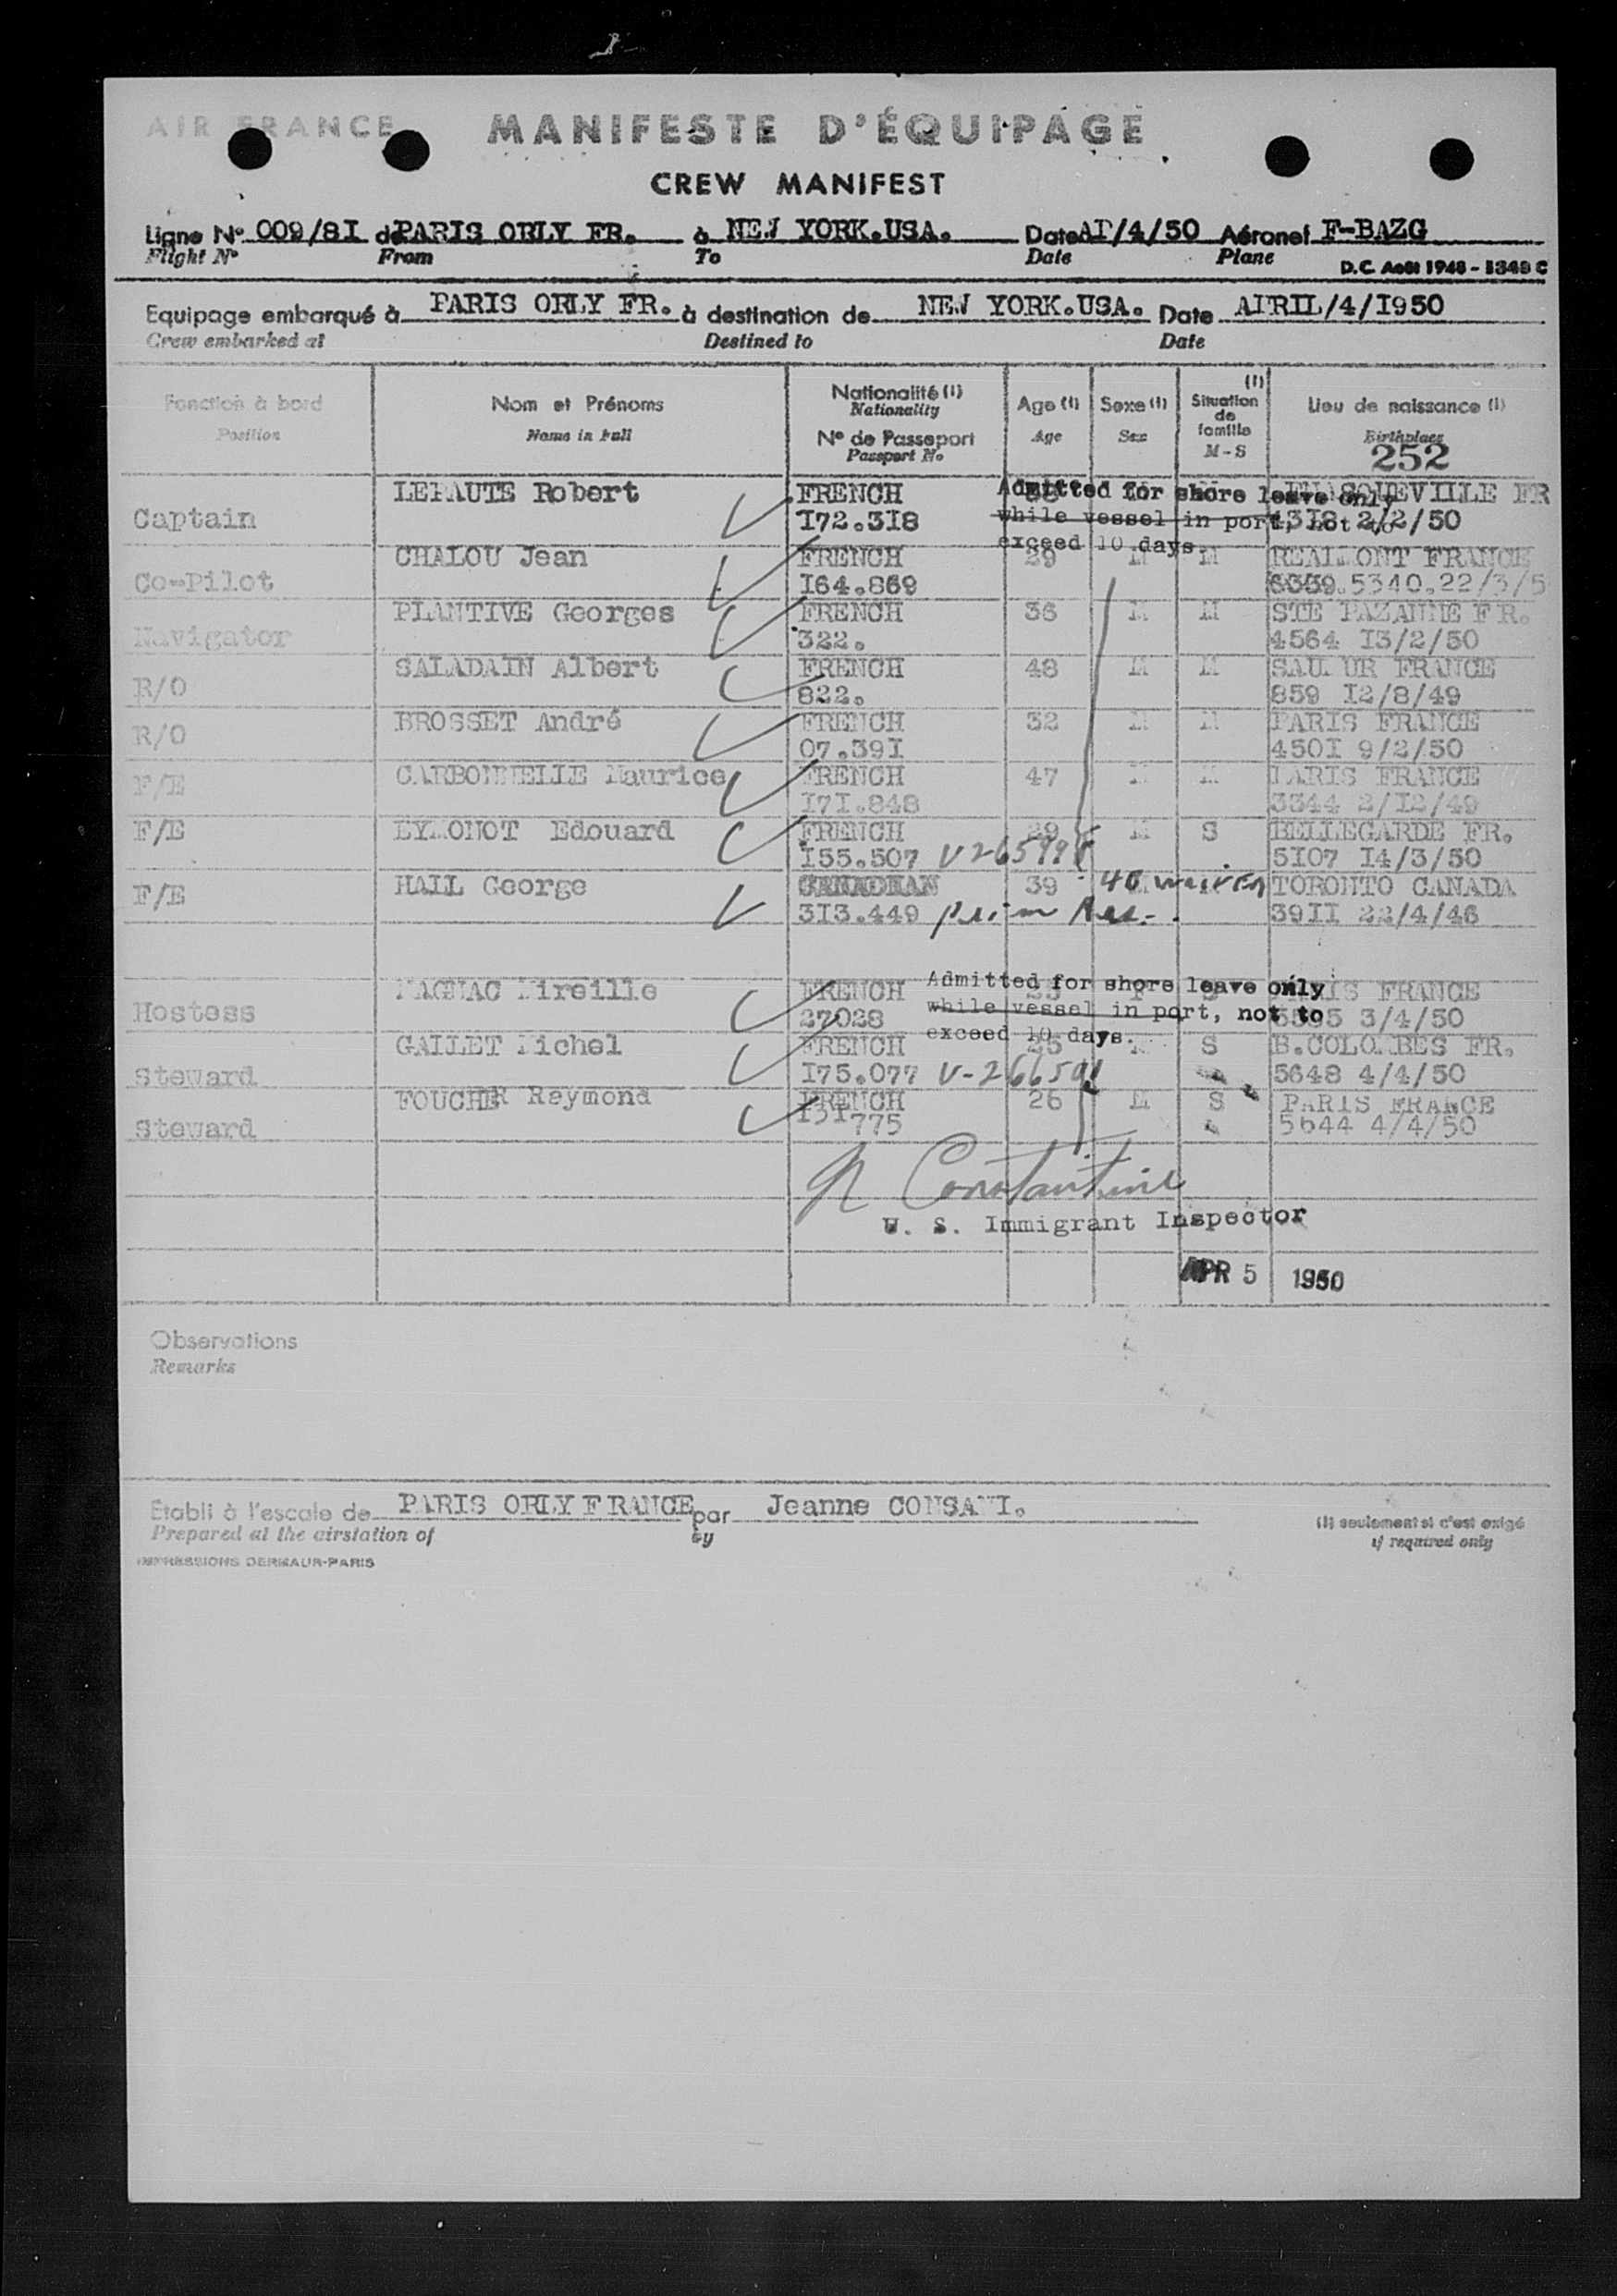 AIR FRANCE MANIFESTE D'ÉQUIPAGE
CREW MANIFEST
Ligne N° 009/8I de PARIS ORLY FR. à NEW YORK.USA. Date AP/4/50 Aéronef F-BAZG
Flight N° From To Date Plane
D.C. Août 1948 - 1349 C
Equipage embarqué à PARIS ORLY FR. à destination de NEW YORK.USA. Date APRIL/4/I950
Crew embarked at Destined to Date
Fonction à bord Nom et Prénoms Nationalité (1) Age (1) Sexe (1) (1) Situation de famille Lieu de naissance (1)
Position Name in full Nationality Age Sex M - S Birthplace
N° de Passeport
Passport No
252
LEPAUTE Robert FRENCH
Admitted for shore leave only
Captain I72.3I8 2/2/50
while vessel in port, not to
exceed 10 days.
CHALOU Jean FRENCH 29 M M REALMONT FRANCE
Co-Pilot I64.869 5340.22/3/5
PLANTIVE Georges FRENCH 36 M M STE PAZANNE FR.
Navigator 322. 4564 I3/2/50
SALADAIN Albert FRENCH 48 M M SAUMUR FRANCE
R/O 822. 859 I2/8/49
BROSSET André FRENCH 32 M M PARIS FRANCE
R/O 07.39I 450I 9/2/50
CARBONNELLE Maurice FRENCH 47 M M PARIS FRANCE
F/E I7I.848 3344 2/I2/49
F/E EYMONOT Edouard FRENCH 29 M S BELLEGARDE FR.
I55.507 V265998 5I07 I4/3/50
HALL George CANADIAN 39 40 waiver TORONTO CANADA
F/E 3I3.449 39II 22/4/46
MAGNAC Mireille FRENCH PARIS FRANCE
Admitted for shore leave only
Hostess 27028 3/4/50
while vessel in port, not to
exceed 10 days.
GALLET Michel FRENCH 25 M S B.COLOMBES FR.
Steward I75.077 5648 4/4/50
FOUCHER Raymond FRENCH 26 M S PARIS FRANCE
Steward I31775 5644 4/4/50
N Constantine
U. S. Immigrant Inspector
APR 5 1950
Observations
Remarks
Etabli à l'escale de PARIS ORLY FRANCE par Jeanne
Prepared at the airstation of by
(1) seulement si c'est exigé
if required only
IMPRESSIONS DERMAUR-PARIS